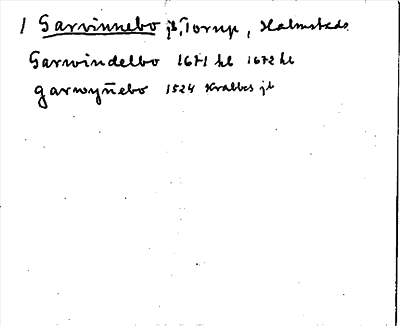 1 Garvinnebo jb, Torup, Halmstads
Garwindelbo 1671 hl 1672 hl
garwyn̄ebo 1524 Kralbes jb